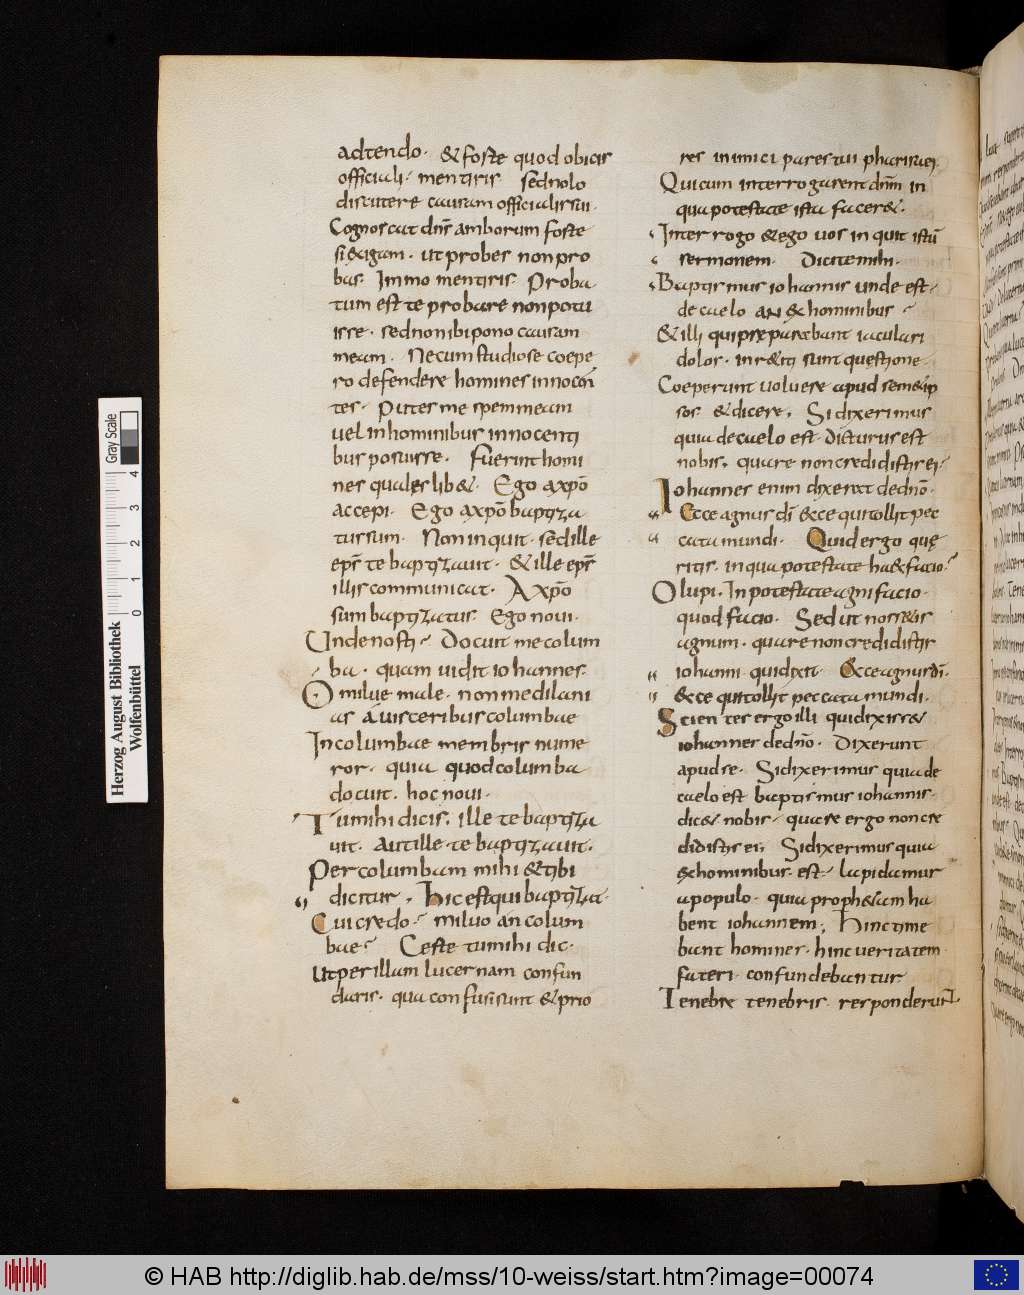 adtendo. & foste quod obicis
officiali. mentiris sed nolo
discutere causam officialis tui.
Cognoscat dns amborum foste
si exigam. ut probes non pro
bas. Immo mentiris. Proba
tum est te probare non potu
isse. sed non ibi pono causam
meam. Ne cum studiose coepe
ro defendere homines innocen
tes. putes me spem meam
vel in hominibus innocenti
bus posuisse. Fuerint homi
nes qualeslib&. Ego a xpo
accepi. Ego a xpo baptiza
tus sum. Non inquit. sed ille
eps te baptizavit. & ille eps
illis communicat. A xpo
sum baptizatus Ego novi.
Unde nosti? Docuit me colum
ba. quam vidit iohannes.
O milue male. non me dilani
as a visceribus columbae
In columbae membris nume
ror. quia quod columba
docuit. hoc novi.
Tu mihi dicis. ille te baptiza
vit. aut ille te baptizavit.
Per columbam mihi & tibi
dicitur. Hic est qui baptizat.
Cui credo? miluo an colum
bae? Certe tu mihi dic.
Ut per illam lucernam confun
daris. qua confusi sunt & prio
res inimici pares tui pharisaei.
Qui cum interrogarent dnm in
qua potestate ista facer&.
Interrogo & ego vos inquit istu
sermonem. Dicite mihi.
Baptismus iohannis unde est?
de caelo an ex hominibus?
& illi qui praeparabant iaculari
dolos. inr&iti sunt quęstione.
Coeperunt volvere apud sem&ip
sos & dicere. Si dixerimus
quia de caelo est. dicturus est
nobis. quare non credidistis ei?
Iohannes enim dixerat de dno.
Ecce agnus di ecce qui tollit pec
cata mundi. Quid ergo quę
ritis. in qua potestate haec facio?
O lupi. In potestate agni facio.
quod facio. Sed ut nossetis
agnum. quare non credidistis
iohanni. qui dixit. Ecce agnus di.
ecce qui tollit peccata mundi.
Scientes ergo illi quid dixiss&
iohannes de dno. Dixerunt
apud se. Si dixerimus quia de
caelo est baptismus iohannis.
dic& nobis. quare ergo non cre
didistis ei. Si dixerimus quia
ex hominibus est. lapidamur
a populo. quia proph&am ha
bent iohannem. Hinc time
bant homines. hinc veritatem
fateri confundebantur
Tenebrę tenebris responderunt.
Herzog August Bibliothek
Wolfenbüttel
Gray Scale
0 1 2 3 4
© HAB http://diglib.hab.de/mss/10-weiss/start.htm?image=00074